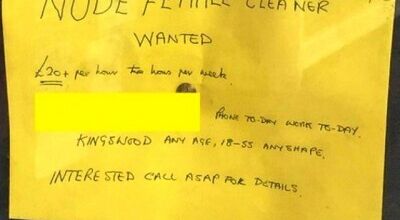 NUDE FEMALE CLEANER
WANTED
£20+ per hour two hours per week
PHONE TO-DAY WORK TO-DAY.
KINGSWOOD ANY AGE, 18-55 ANY SHAPE.
INTERESTED CALL ASAP FOR DETAILS.